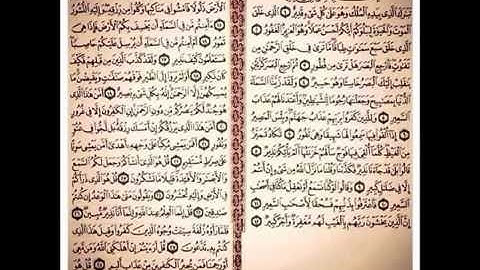 تبرك الذي بيده الملك وهو على كل شيء قدير ١ الذي خلق
الموت والحيوة ليبلوكم أيكم أحسن عملا وهو العزيز الغفور ٢
الذي خلق سبع سموت طباقا ما ترى في خلق الرحمن من تفوت
فارجع البصر هل ترى من فطور ٣ ثم ارجع البصر كرتين
ينقلب إليك البصر خاسئا وهو حسير ٤ ولقد زينا السماء
الدنيا بمصبيح وجعلنها رجوما للشيطين وأعتدنا لهم عذاب
السعير ٥ وللذين كفروا بربهم عذاب جهنم وبئس المصير
٦ إذا ألقوا فيها سمعوا لها شهيقا وهي تفور ٧ تكاد تميز
من الغيظ كلما ألقي فيها فوج سألهم خزنتها ألم يأتكم نذير ٨
قالوا بلى قد جاءنا نذير فكذبنا وقلنا ما نزل الله من شيء إن أنتم
إلا في ضلل كبير ٩ وقالوا لو كنا نسمع أو نعقل ما كنا في أصحب
السعير ١٠ فاعترفوا بذنبهم فسحقا لأصحب السعير ١١
إن الذين يخشون ربهم بالغيب لهم مغفرة وأجر كبير ١٢
الأرض ذلولا فامشوا في مناكبها وكلوا من رزقه وإليه النشور
١٥ ءأمنتم من في السماء أن يخسف بكم الأرض فإذا هي
تمور ١٦ أم أمنتم من في السماء أن يرسل عليكم حاصبا
فستعلمون كيف نذير ١٧ ولقد كذب الذين من قبلهم فكيف
كان نكير ١٨ أولم يروا إلى الطير فوقهم صفت ويقبضن ما
يمسكهن إلا الرحمن إنه بكل شيء بصير ١٩ أمن هذا الذي
هو جند لكم ينصركم من دون الرحمن إن الكفرون إلا في غرور
٢٠ أمن هذا الذي يرزقكم إن أمسك رزقه بل لجوا في عتو
ونفور ٢١ أفمن يمشي مكبا على وجهه أهدى أمن يمشي سويا
على صرط مستقيم ٢٢ قل هو الذي أنشأكم وجعل لكم السمع
والأبصر والأفئدة قليلا ما تشكرون ٢٣ قل هو الذي ذرأكم
في الأرض وإليه تحشرون ٢٤ ويقولون متى هذا الوعد إن كنتم
صدقين ٢٥ قل إنما العلم عند الله وإنما أنا نذير مبين ٢٦
فلما رأوه زلفة سيئت وجوه الذين كفروا وقيل هذا الذي
كنتم به تدعون ٢٧ قل أرءيتم إن أهلكني الله ومن معي
أو رحمنا فمن يجير الكفرين من عذاب أليم ٢٨